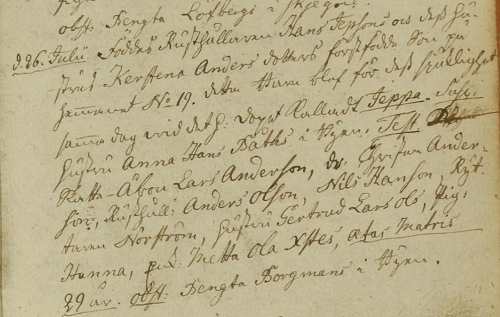 obst: Bengta Löfbergs i
d. 26. Julii Föddes Rusthållaren Hans Jepsons och dess hu-
strus Kerstena Anders dotters förstfödde Son på
hemmanet No 19. detta Barn blef för dess sjuklighet
samma dag wid det h: dopet kalladt Jeppa. Susc.
hustru Anna Hans Bäths i Byen. Test
Skatte-Åbon Lars Anderson, dr: Christian Ander-
son, Rusthåll: Anders Olson, Nils Hanson, Ryt-
taren Norström, hustru Gertrud Lars ols, Pig:
Hanna, pig: Metta Ola Xstes, ætas Matris
29 år. obst: Bengta Borgmans i Byen.